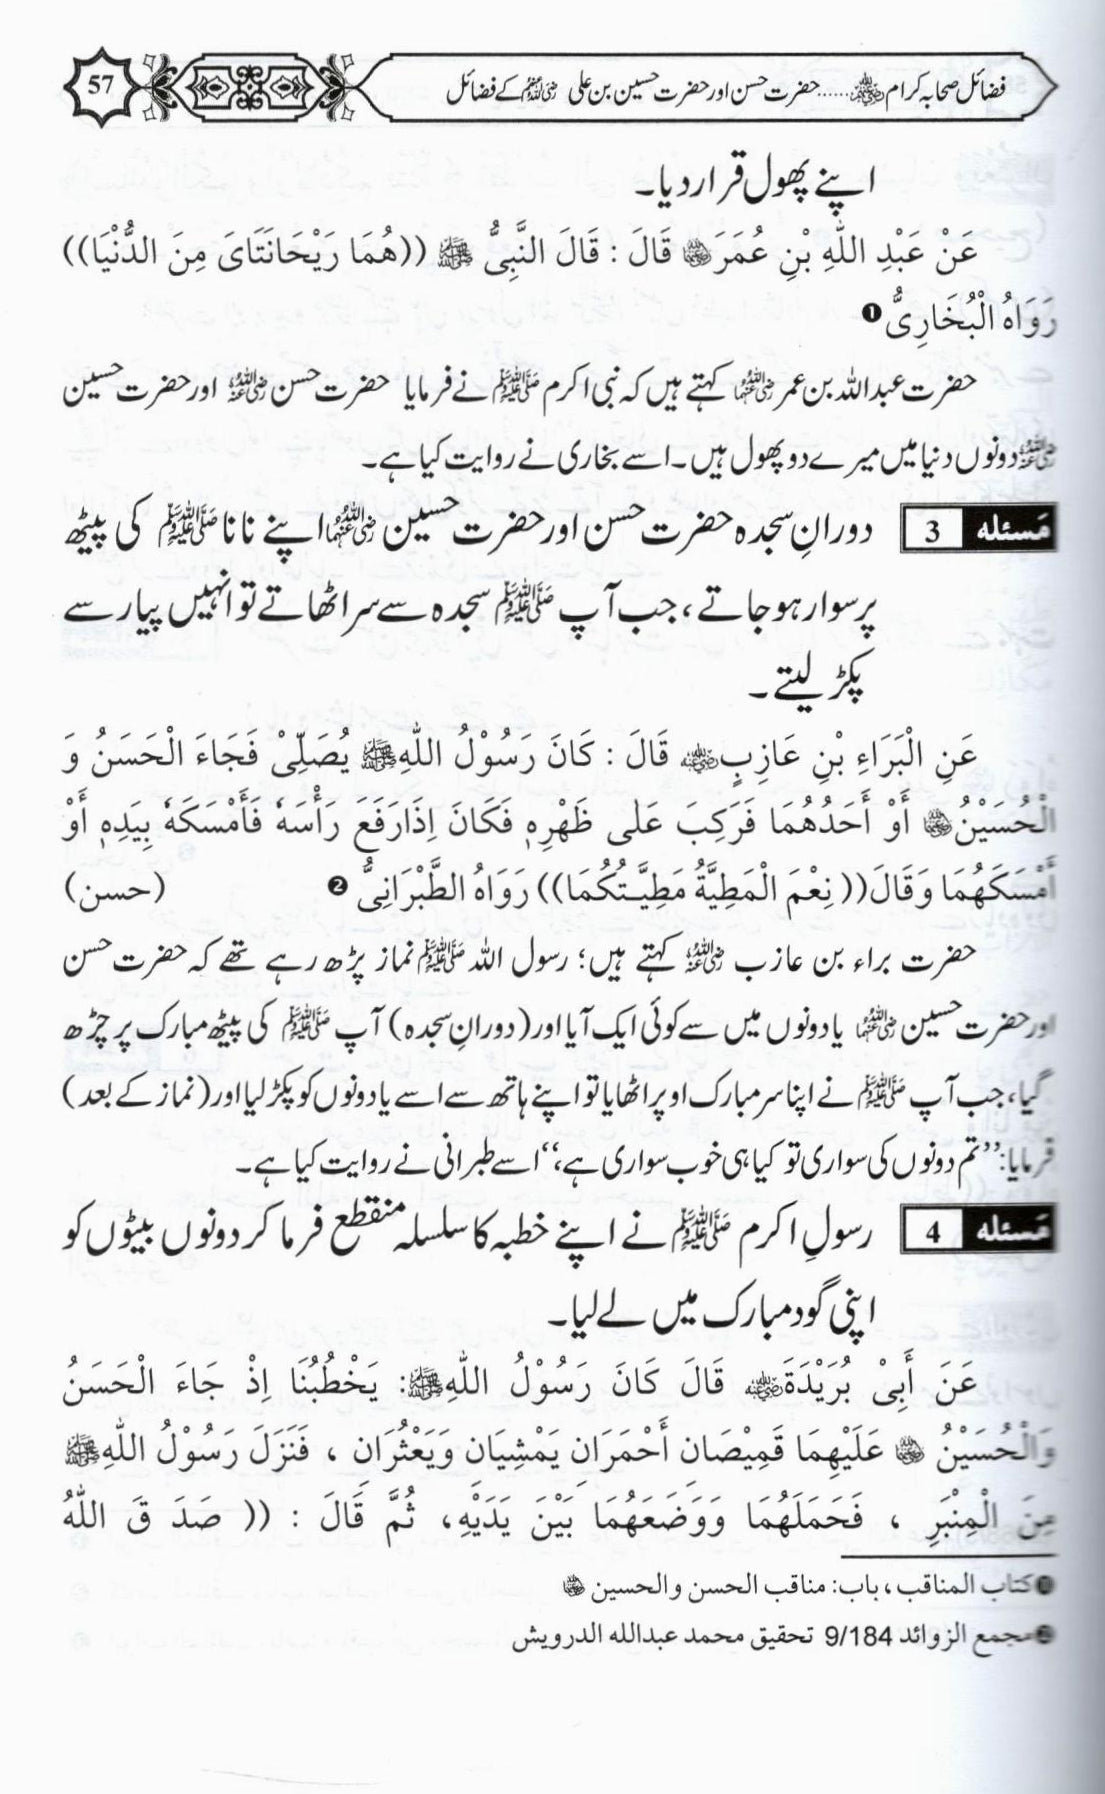 فضائل صحابہ کرام رضی اللہ عنہم ...... حضرت حسن اور حضرت حسین بن علی رضی اللہ عنہم کے فضائل
57
اپنے پھول قرار دیا۔
عَنْ عَبْدِ اللّٰهِ بْنِ عُمَرَ رضی اللہ عنہما قَالَ : قَالَ النَّبِیُّ ﷺ ((هُمَا رَیْحَانَتَایَ مِنَ الدُّنْیَا))
رَوَاهُ الْبُخَارِیُّ ❶
حضرت عبداللہ بن عمر رضی اللہ عنہما کہتے ہیں کہ نبی اکرم ﷺ نے فرمایا حضرت حسن رضی اللہ عنہ اور حضرت حسین
رضی اللہ عنہ دونوں دنیا میں میرے دو پھول ہیں۔ اسے بخاری نے روایت کیا ہے۔
مَسئلہ 3 دورانِ سجدہ حضرت حسن اور حضرت حسین رضی اللہ عنہما اپنے نانا ﷺ کی پیٹھ
پر سوار ہو جاتے ، جب آپ ﷺ سجدہ سے سر اٹھاتے تو انہیں پیار سے
پکڑ لیتے ۔
عَنِ الْبَرَاءِ بْنِ عَازِبٍ رضی اللہ عنہ قَالَ : كَانَ رَسُوْلُ اللّٰهِ ﷺ یُصَلِّیْ فَجَاءَ الْحَسَنُ وَ
الْحُسَیْنُ رضی اللہ عنہما أَوْ أَحَدُهُمَا فَرَكِبَ عَلٰی ظَهْرِهٖ فَكَانَ اِذَا رَفَعَ رَأْسَهٗ فَأَمْسَكَهٗ بِیَدِهٖ أَوْ
أَمْسَكَهُمَا وَقَالَ (( نِعْمَ الْمَطِیَّةُ مَطِیَّتُكُمَا)) رَوَاهُ الطَّبْرَانِیُّ ❷ (حسن)
حضرت براء بن عازب رضی اللہ عنہ کہتے ہیں؛ رسول اللہ ﷺ نماز پڑھ رہے تھے کہ حضرت حسن
اور حضرت حسین رضی اللہ عنہما یا دونوں میں سے کوئی ایک آیا اور (دورانِ سجدہ) آپ ﷺ کی پیٹھ مبارک پر چڑھ
گیا، جب آپ ﷺ نے اپنا سر مبارک اوپر اٹھایا تو اپنے ہاتھ سے اسے یا دونوں کو پکڑ لیا اور (نماز کے بعد)
فرمایا: ’’تم دونوں کی سواری تو کیا ہی خوب سواری ہے،‘‘ اسے طبرانی نے روایت کیا ہے۔
مَسئلہ 4 رسولِ اکرم ﷺ نے اپنے خطبہ کا سلسلہ منقطع فرما کر دونوں بیٹوں کو
اپنی گود مبارک میں لے لیا۔
عَنَ أَبِیْ بُرَیْدَةَ رضی اللہ عنہ قَالَ كَانَ رَسُوْلُ اللّٰهِ ﷺ: یَخْطُبُنَا اِذْ جَاءَ الْحَسَنُ
وَالْحُسَیْنُ رضی اللہ عنہما عَلَیْهِمَا قَمِیْصَانِ أَحْمَرَانِ یَمْشِیَانِ وَیَعْثُرَانِ ، فَنَزَلَ رَسُوْلُ اللّٰهِ ﷺ
مِنَ الْمِنْبَرِ ، فَحَمَلَهُمَا وَوَضَعَهُمَا بَیْنَ یَدَیْهِ، ثُمَّ قَالَ : (( صَدَ قَ اللّٰهُ
❶ کتاب المناقب ، باب: مناقب الحسن والحسین رضی اللہ عنہما
❷ مجمع الزوائد 9/184 تحقیق محمد عبدالله الدرویش